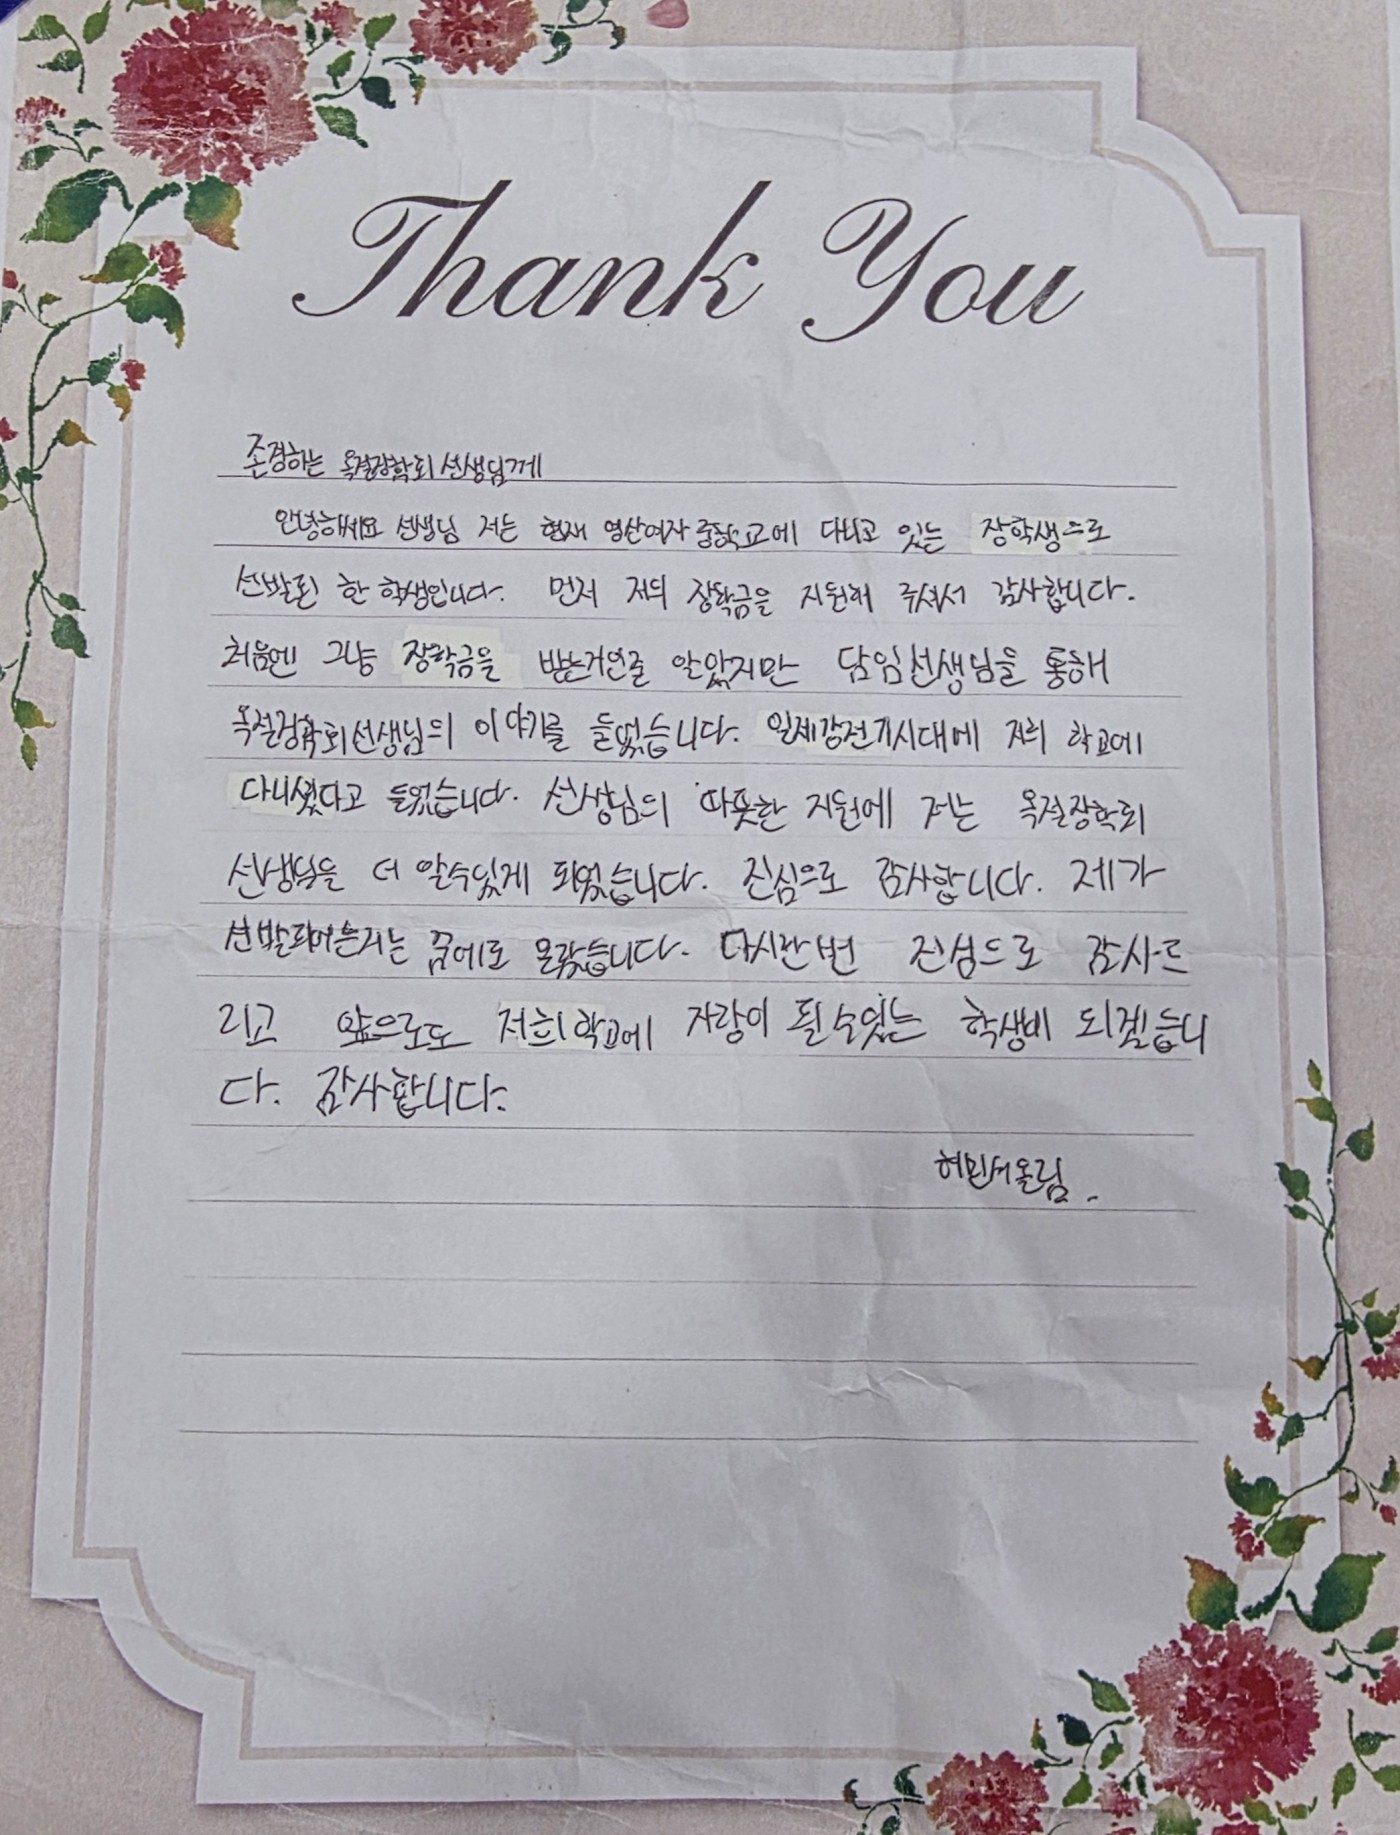 Thank You
존경하는 옥절장학회 선생님께
안녕하세요 선생님 저는 현재 영산여자중학교에 다니고 있는 장학생으로
선발된 한 학생입니다. 먼저 저의 장학금을 지원해 주셔서 감사합니다.
처음엔 그냥 장학금을 받는거인줄 알았지만 담임선생님을 통해
옥절장학회선생님의 이야기를 들었습니다. 일제강점기시대에 저희 학교에
다니셨다고 들었습니다. 선생님의 따뜻한 지원에 저는 옥절장학회
선생님을 더 알수있게 되었습니다. 진심으로 감사합니다. 제가
선발되어는지는 꿈에도 몰랐습니다. 다시한번 진심으로 감사드
리고 앞으로도 저희학교에 자랑이 될수있는 학생이 되겠습니
다. 감사합니다.
허민서올림.